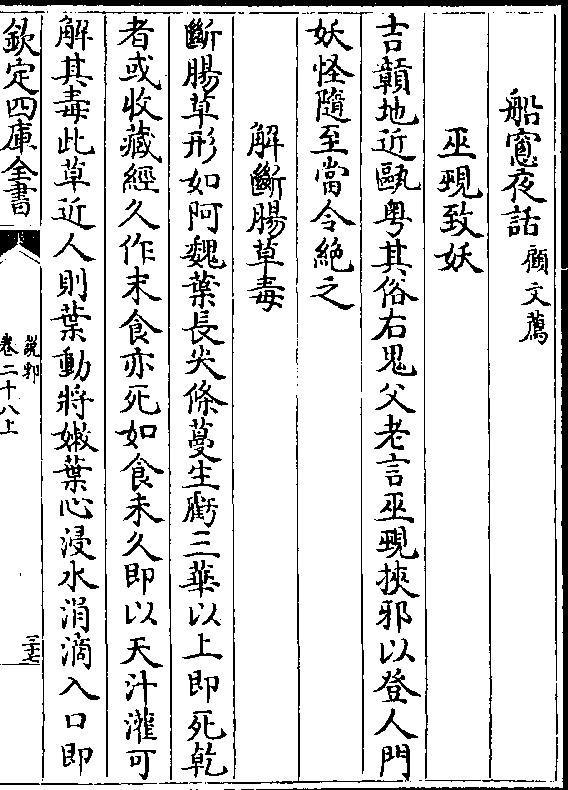 船窻夜話 顧文薦
巫覡致妖
吉贛地近甌粤其俗右鬼父老言巫覡挾邪以登人門
妖怪隨至當令絶之
解斷腸草毒
斷腸草形如阿魏葉長尖條蔓生服三葉以上即死乾
者或收藏經久作末食亦死如食未久即以天汁灌可
解其毒此草近人則葉動將嫩葉心浸水涓滴入口即
欽定四庫全書
說郛
卷二十八上
三十七